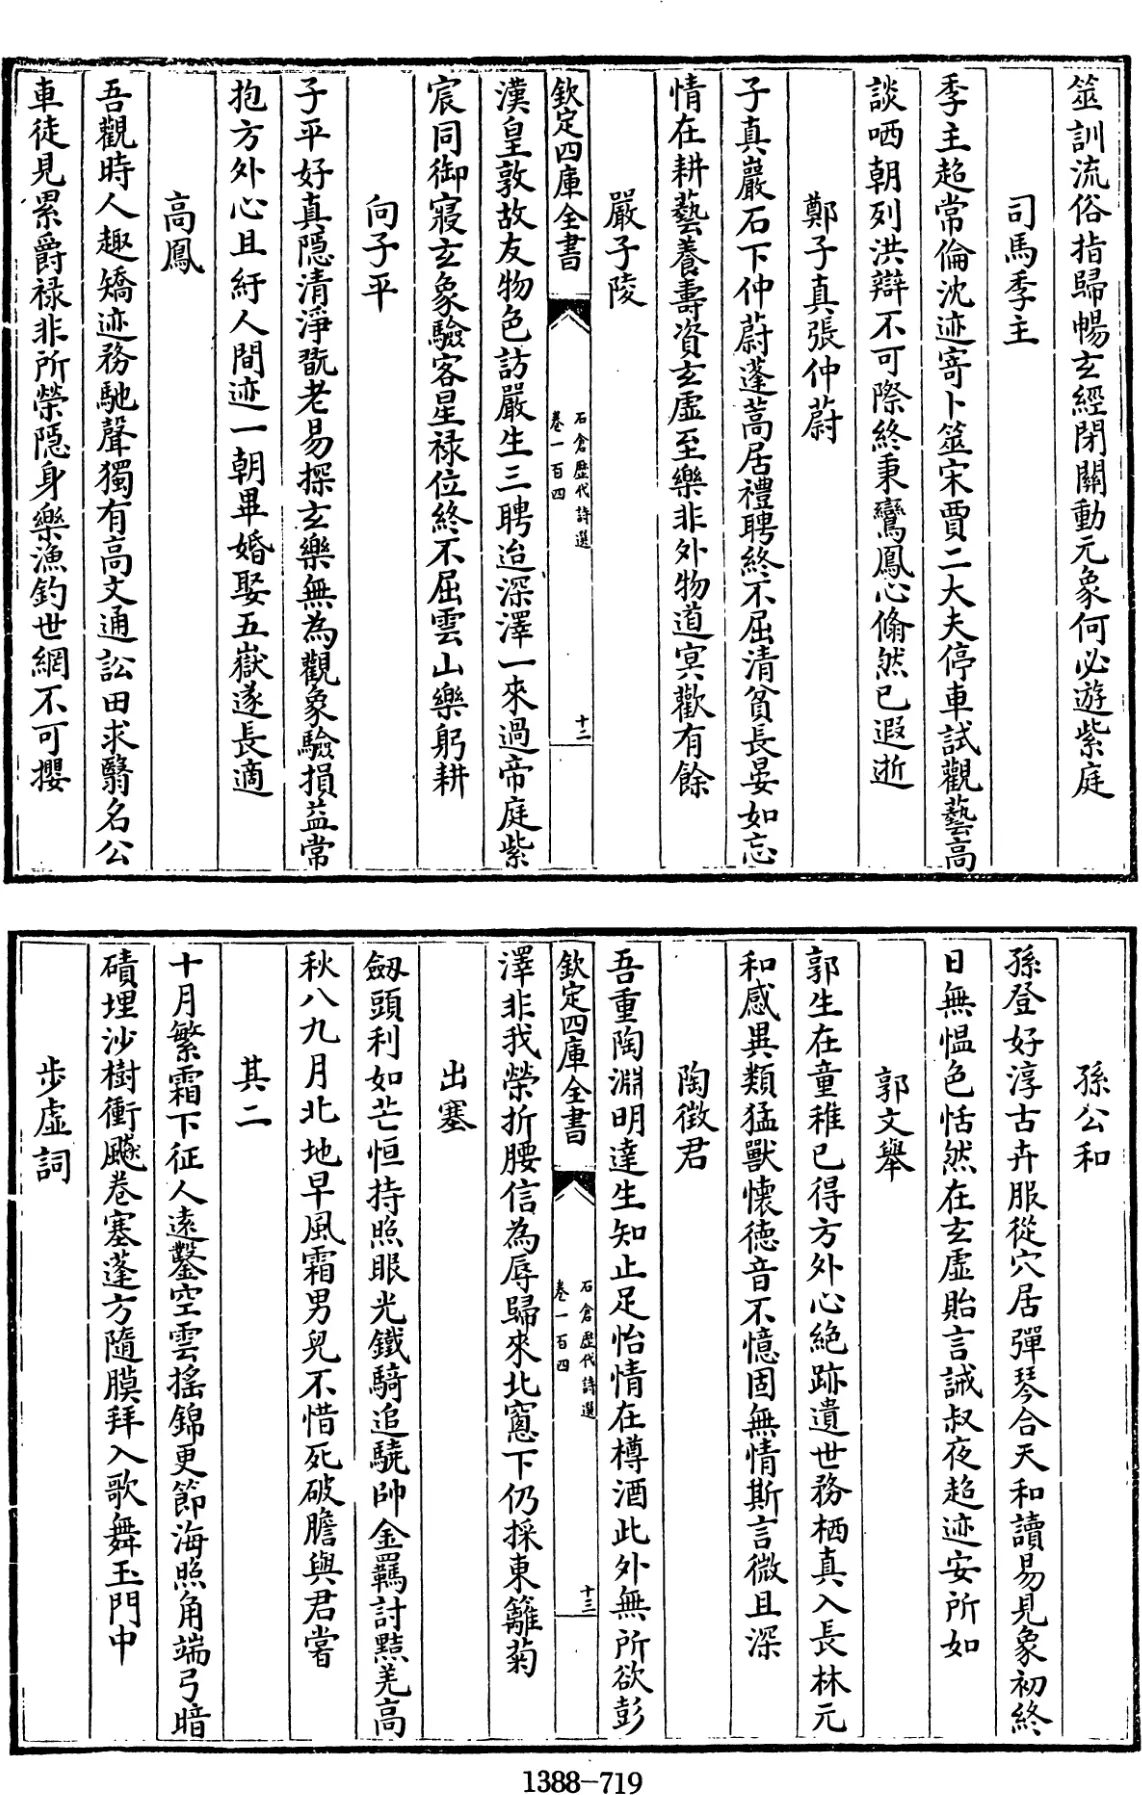 筮訓流俗指歸暢玄經閉關動元象何必遊紫庭
司馬季主
季主超常倫沈迹寄卜筮宋賈二大夫停車試觀藝高
談哂朝列洪辯不可際終秉鸞鳳心翛然已遐逝
鄭子真張仲蔚
子真巖石下仲蔚蓬蒿居禮聘終不屈清貧長晏如忘
情在耕藝養壽資玄虛至樂非外物道冥歡有餘
嚴子陵
欽定四庫全書
石倉歷代詩選
卷一百四
十二
漢皇敦故友物色訪嚴生三聘迨深澤一來過帝庭紫
宸同御寢玄象驗客星祿位終不屈雲山樂躬耕
向子平
子平好真隱清淨翫老易探玄樂無為觀象驗損益常
抱方外心且紆人間迹一朝畢婚娶五嶽遂長適
高鳳
吾觀時人趣矯迹務馳聲獨有高文通訟田求翳名公
車徒見累爵祿非所榮隱身樂漁釣世網不可攖
孫公和
孫登好淳古卉服從穴居彈琴合天和讀易見象初終
日無慍色恬然在玄虛貽言誡叔夜超迹安所如
郭文舉
郭生在童稚已得方外心絕跡遺世務栖真入長林元
和感異類猛獸懷德音不憶固無情斯言微且深
陶徵君
吾重陶淵明達生知止足怡情在樽酒此外無所欲彭
欽定四庫全書
石倉歷代詩選
卷一百四
十三
澤非我榮折腰信為辱歸來北窻下仍採東籬菊
出塞
劔頭利如芒恒持照眼光鐵騎追驍帥金羈討黠羌高
秋八九月北地早風霜男兒不惜死破膽與君嘗
其二
十月繁霜下征人遠鑿空雲搖錦更節海照角端弓暗
磧埋沙樹衝飇卷塞蓬方隨膜拜入歌舞玉門中
步虛詞
1388-719